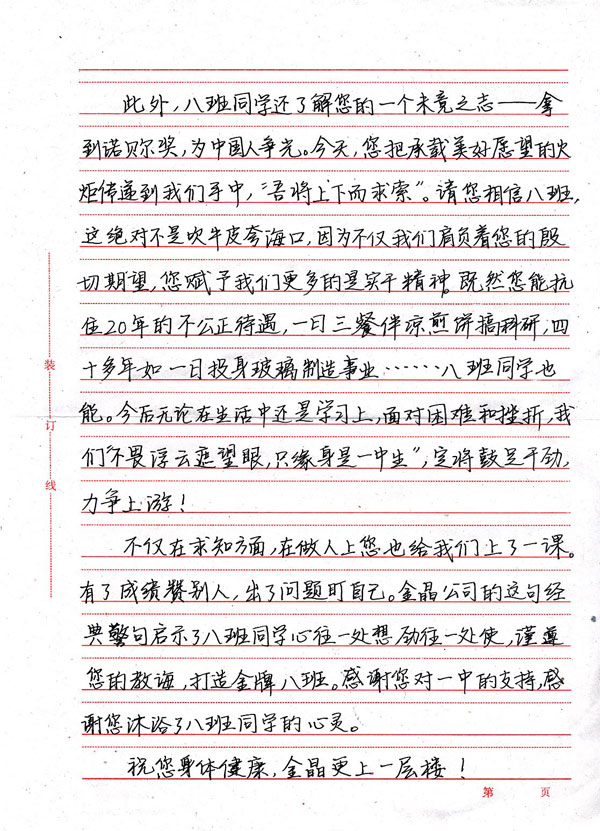 此外,八班同学还了解您的一个未竟之志——拿
到诺贝尔奖,为中国人争光。今天,您把承载美好愿望的火
炬传递到我们手中,“吾将上下而求索”。请您相信八班,
这绝对不是吹牛皮夸海口,因为不仅我们肩负着您的殷
切期望,您赋予我们更多的是实干精神。既然您能抗
住20年的不公正待遇,一日三餐伴凉煎饼搞科研,四
十多年如一日投身玻璃制造事业……八班同学也
能。今后无论在生活中还是学习上,面对困难和挫折,我
们“不畏浮云遮望眼,只缘身是一中生”,定将鼓足干劲,
力争上游!
不仅在求知方面,在做人上您也给我们上了一课。
有了成绩赞别人,出了问题盯自己。金晶公司的这句经
典警句启示了八班同学心往一处想,劲往一处使,谨遵
您的教诲,打造金牌八班。感谢您对一中的支持,感
谢您沐浴了八班同学的心灵。
祝您身体健康,金晶更上一层楼!
装
订
线
第 页